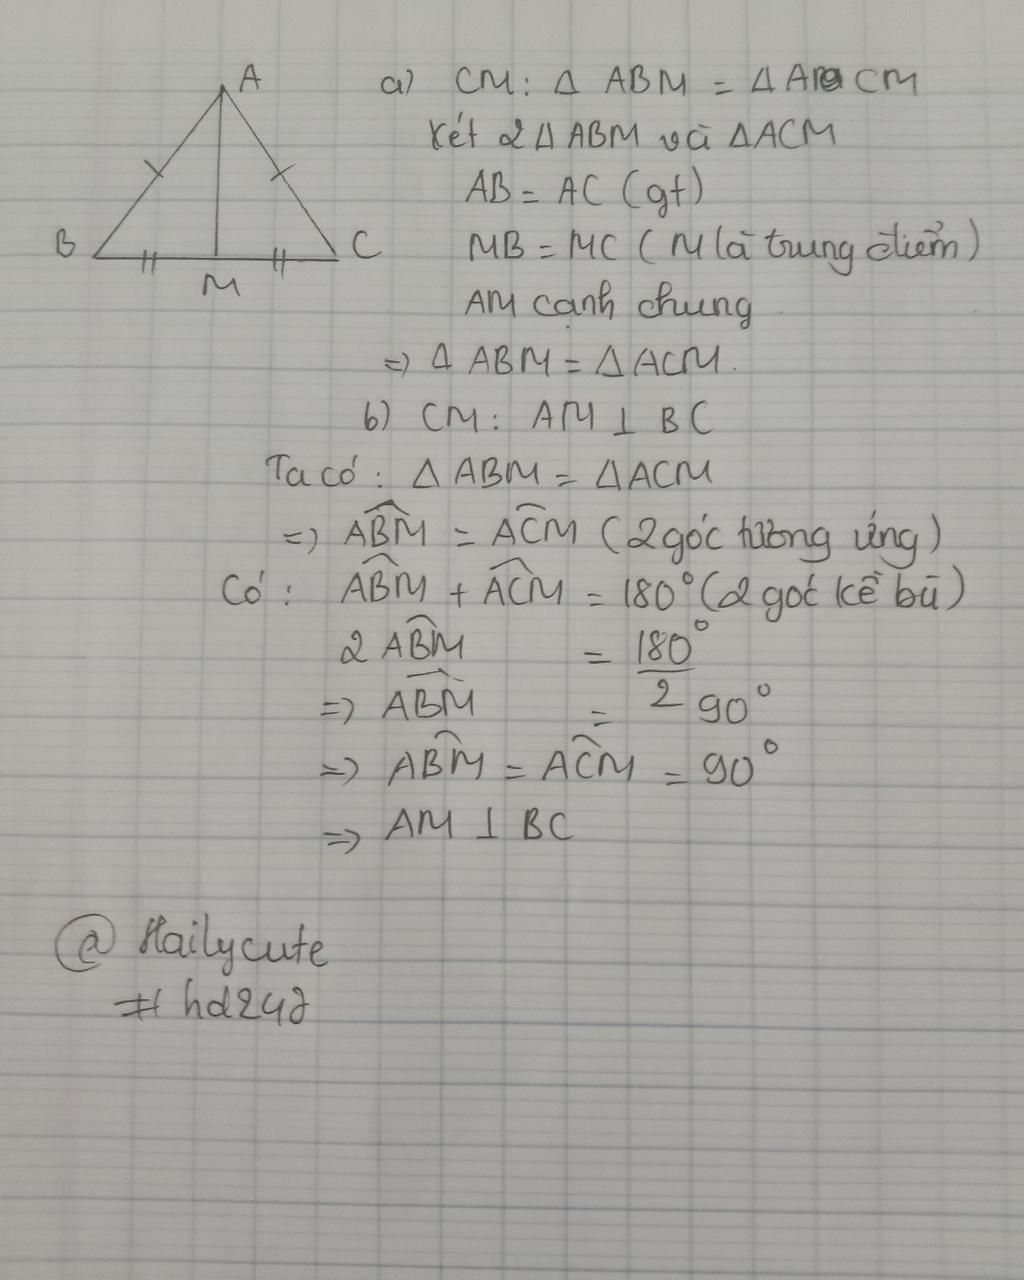 A
B
C
M
a) CM: Δ ABM = Δ ACM
Xét 2 Δ ABM và ΔACM
AB = AC (gt)
MB = MC ( M là trung điểm)
AM cạnh chung
=> Δ ABM = Δ ACM.
b) CM: AM ⊥ BC
Ta có : Δ ABM = ΔACM
=> ABM̂ = AĈM (2 góc tương ứng)
Có : AB̂M + AĈM = 180° (2 góc kề bù)
2 AB̂M = 180° / 2
=> AB̂M = 90°
=> AB̂M = AĈM = 90°
=> AM ⊥ BC
@ Hailycute
# hd247